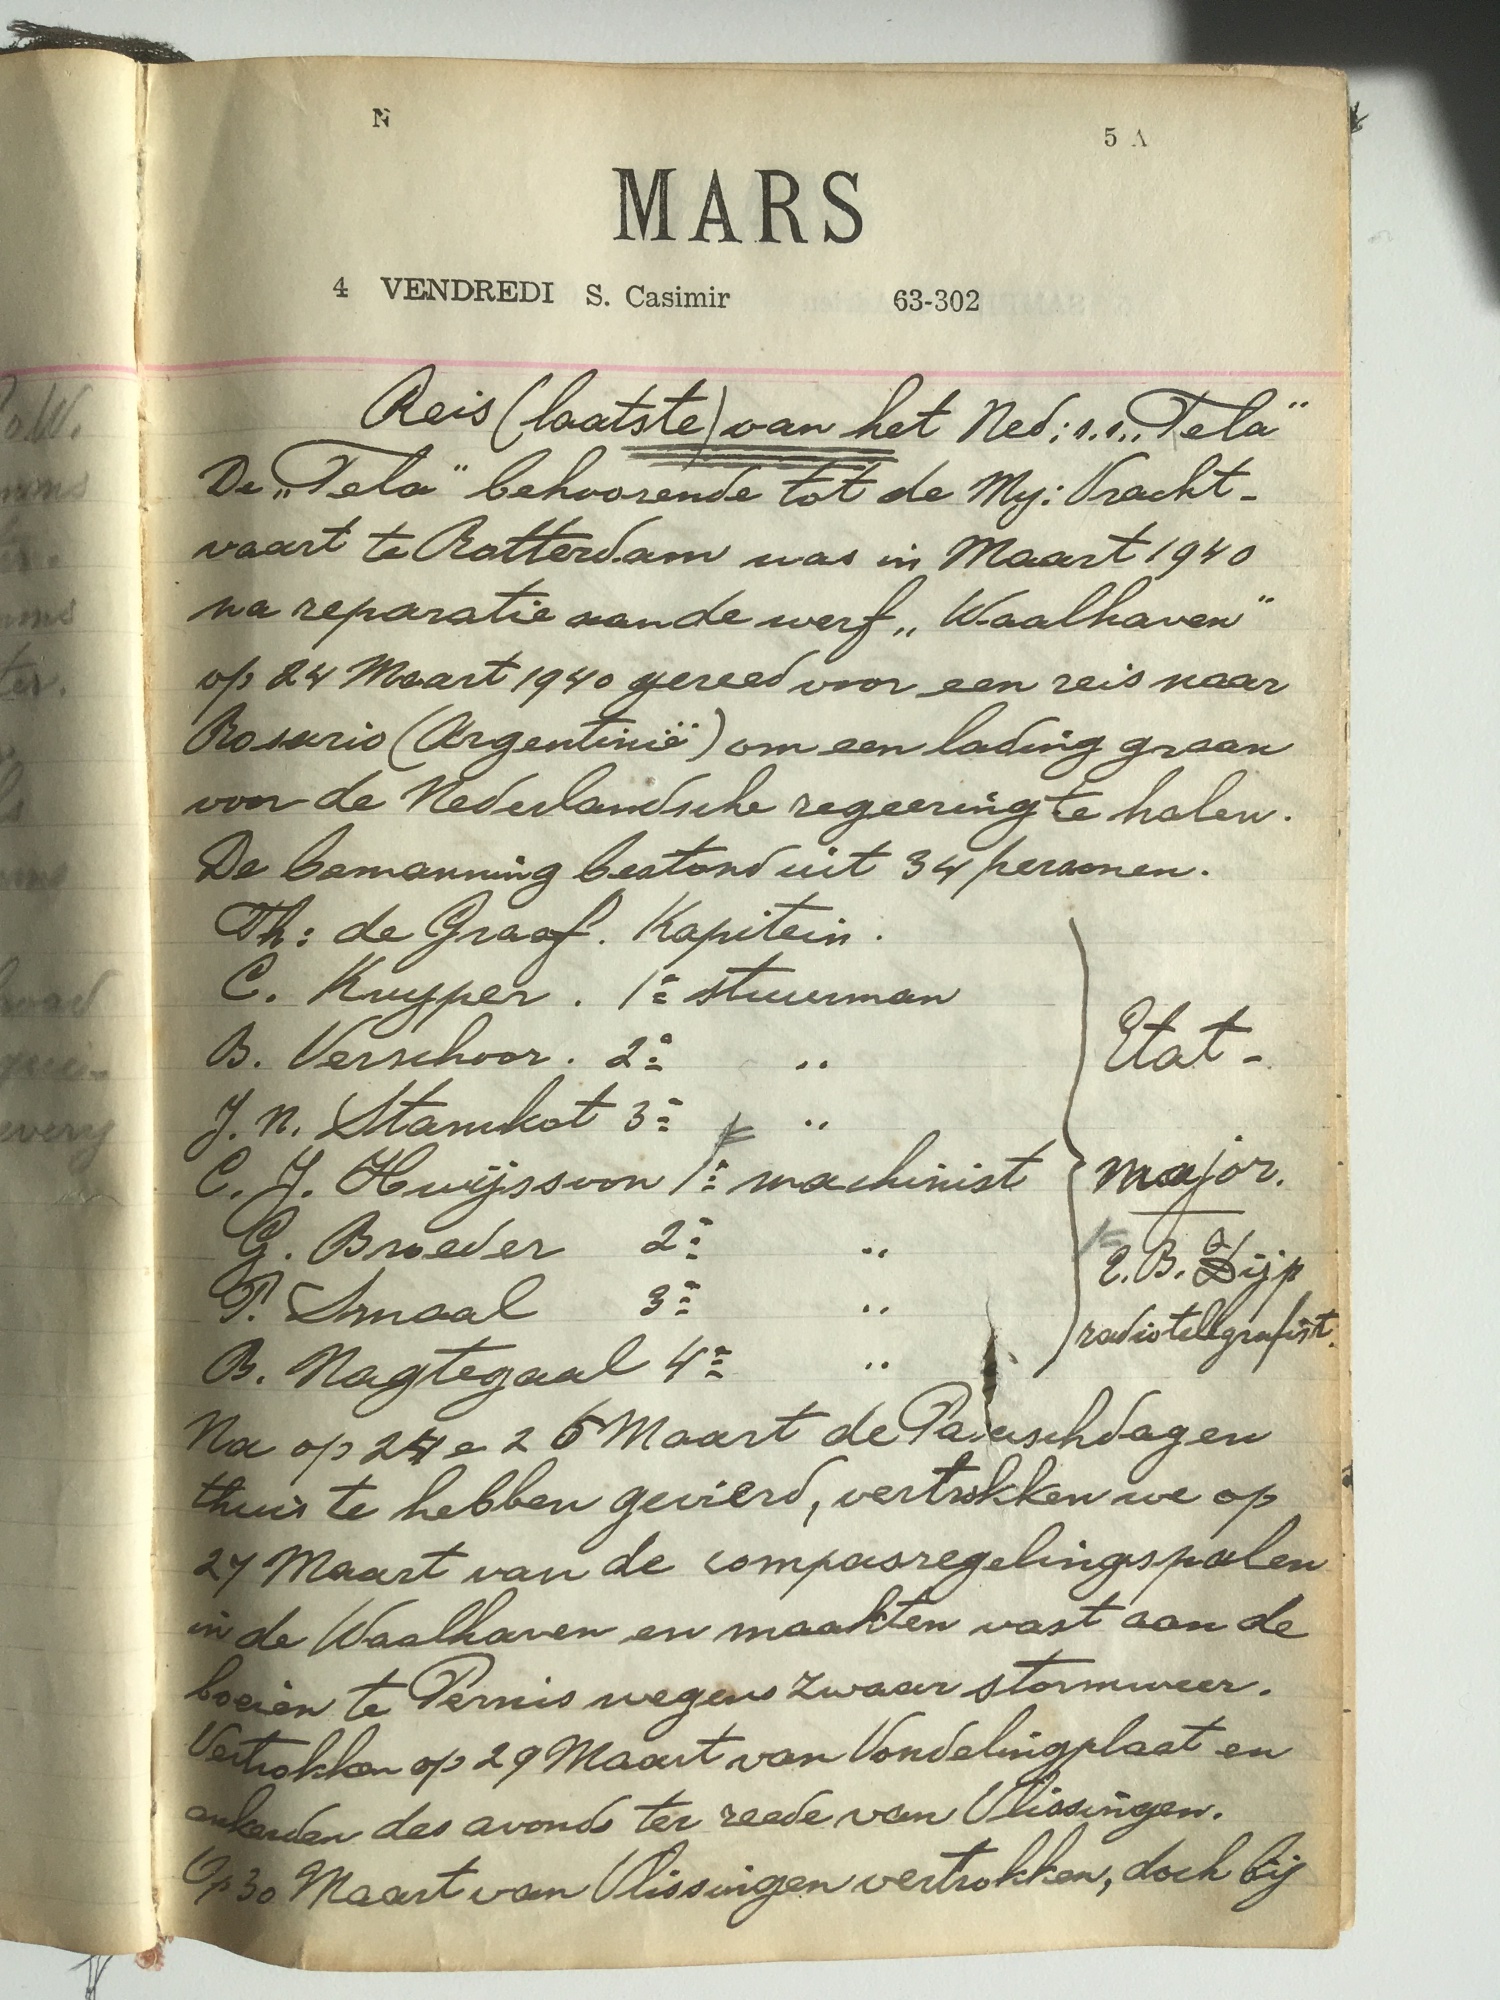 N
5 A
MARS
4 VENDREDI S. Casimir 63-302
Reis (laatste) van het Ned: s.s. „Tela"
De „Tela" behoorende tot de My: Vracht-
vaart te Rotterdam was in Maart 1940
na reparatie aan de werf „Waalhaven"
op 24 Maart 1940 gereed voor een reis naar
Rosario (Argentinië) om een lading graan
voor de Nederlandsche regeering te halen.
De bemanning bestond uit 34 personen.
Th: de Graaf. Kapitein.
C. Kuyper. 1e stuurman
B. Verschoor. 2e "
J. N. Stamkot 3e "
C. J. Huijssoon 1e machinist
G. Broeder 2e "
P. Smaal 3e "
B. Nagtegaal 4e "
Etat-
major.
B. Zijp
radiotelegrafist.
Na op 24 e 25 Maart de Paaschdagen
thuis te hebben gevierd, vertrokken we op
27 Maart van de compasregelingspalen
in de Waalhaven en maakten vast aan de
boeien te Pernis wegens zwaar stormweer.
Vertrokken op 29 Maart van Vondelingplaat en
ankerden des avonds ter reede van Vlissingen.
Op 30 Maart van Vlissingen vertrokken, doch bij